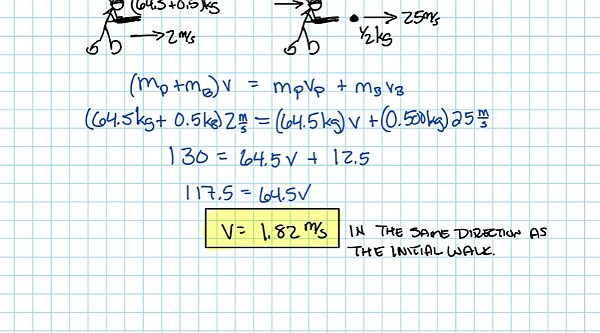 (64.5+0.5)kg
→2m/s
→ 25m/s
½kg
(mp+mB)V = mpVp + mBVB
(64.5kg+ 0.5kg)2 m/s = (64.5kg) v + (0.500kg)25 m/s
130 = 64.5v + 12.5
117.5 = 64.5v
V= 1.82 m/s IN THE SAME DIRECTION AS
THE INITIAL WALK.